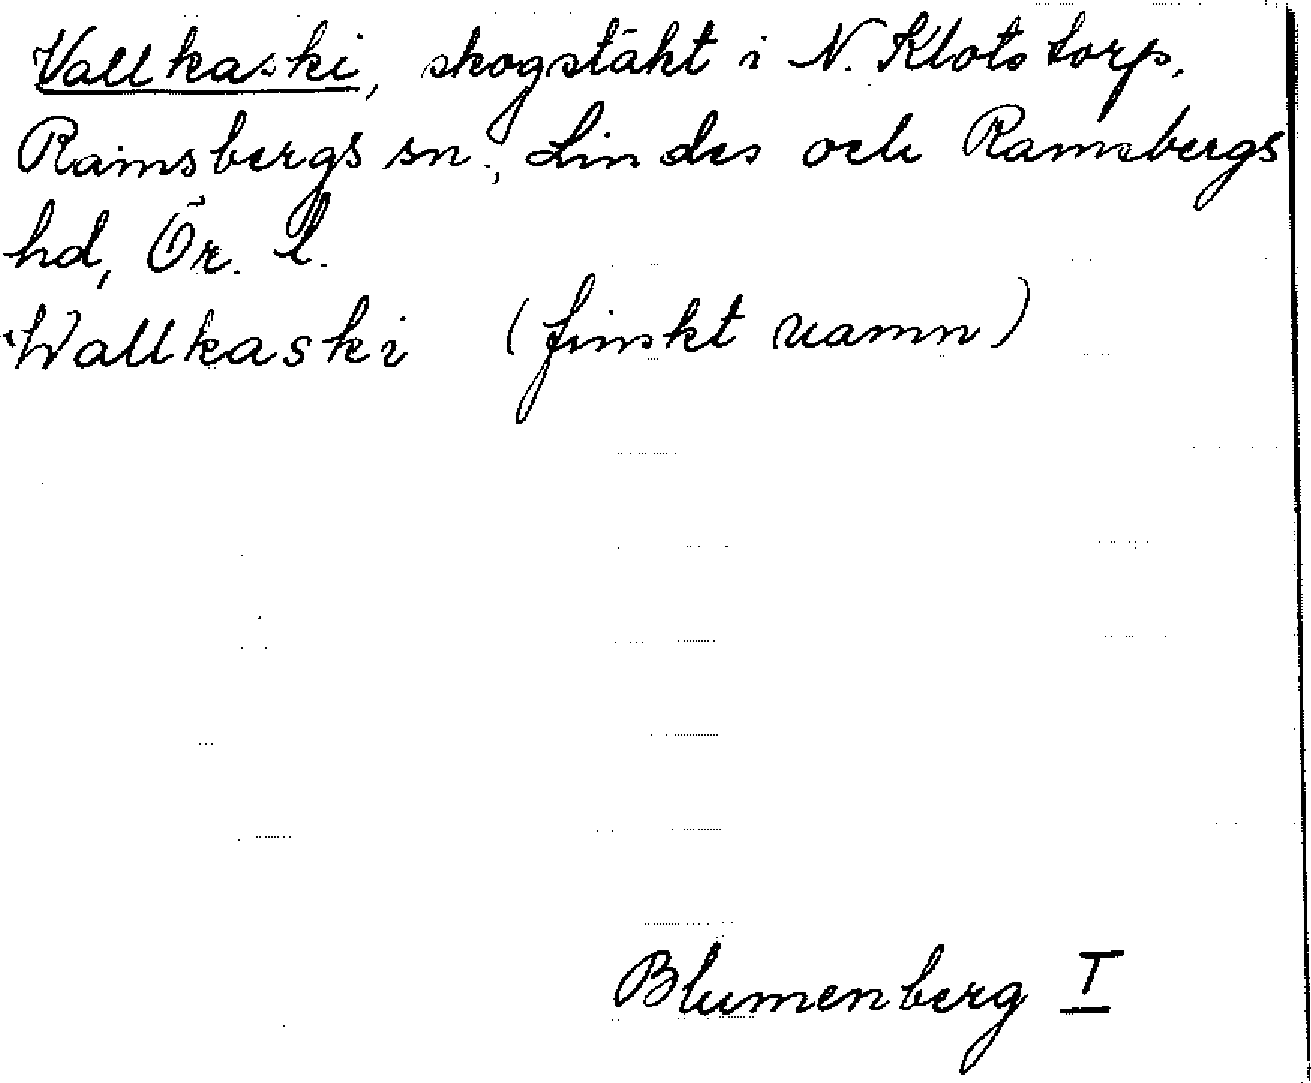 Vallkaski, skogstäkt i N. Klotstorp,
Ramsbergs sn, Lindes och Ramsbergs
hd, Ör. l.
Wallkaski (finskt namn)
Blumenberg I